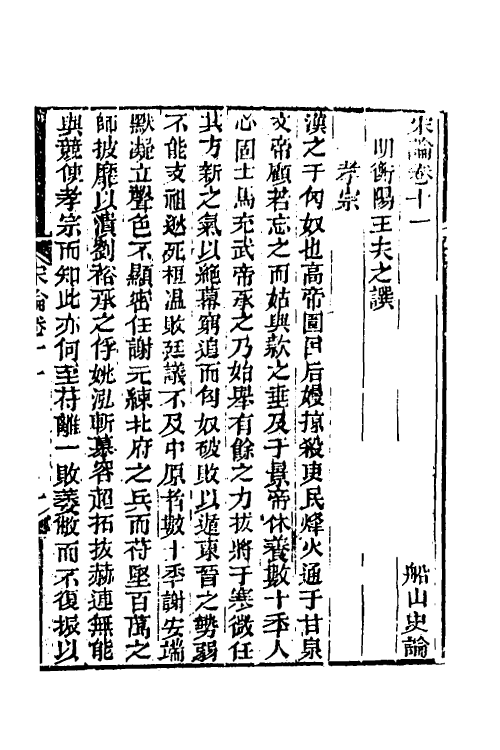 宋論卷十一
船山史論
明衡陽王夫之譔
孝宗
漢之于匈奴也高帝圍呂后嫚掠殺吏民烽火通于甘泉
文帝顧若忘之而姑與款之垂及于景帝休養數十年人
心固士馬充武帝承之乃始舉有餘之力拔將于寒微任
其方新之氣以絕幕窮追而匈奴破敗以遁東晉之勢弱
不能支祖逖死桓溫敗廷議不及中原者數十年謝安端
默凝立聲色不顯密任謝元練北府之兵而苻堅百萬之
師披靡以潰劉裕承之俘姚泓斬慕容超拓拔赫連無能
與競使孝宗而知此亦何至苻離一敗萎敝而不復振以
宋論卷十一
一